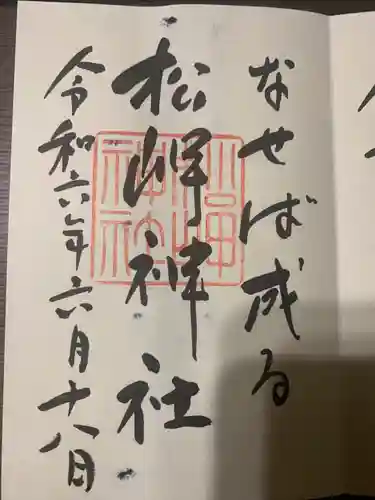 なせば成る
松岬神社
令和六年六月十八日
松岬神社